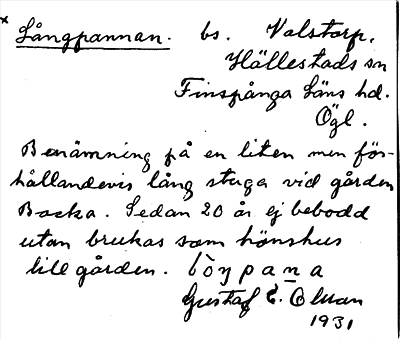 x Långpannan. bs. Valstorp.
Hällestads sn
Finspånga Läns hd.
Ögl.
Benämning på en liten men för-
hållandevis lång stuga vid gården
Backa. Sedan 20 år ej bebodd
utan brukas som hönshus
till gården.
Gustaf E. Olsson
1931